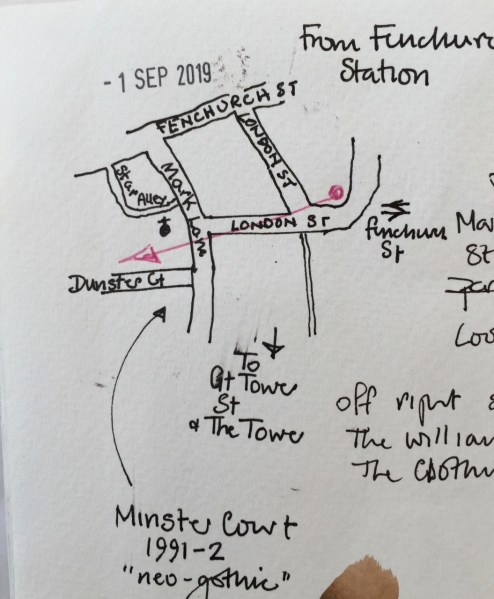 From Fenchurc
Station
- 1 SEP 2019
FENCHURCH ST
LONDON ST
Star Alley
Mark Lane
LONDON ST
Fenchurch
St
Dunster Ct
Mar
St
Loo
To
Gt Tower
St
& The Tower
off right
The William
The Clothw
Minster Court
1991-2
"neo-gothic"